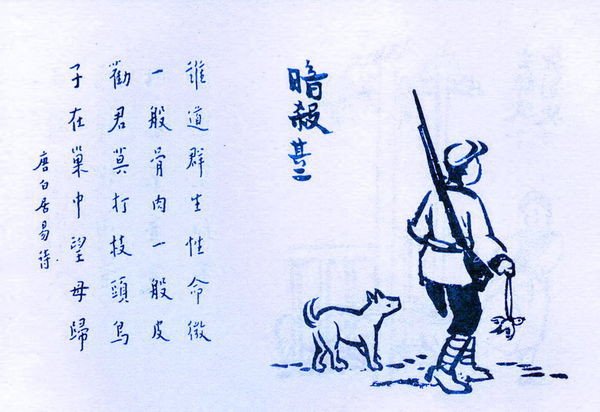 暗殺 其二
誰道群生性命微
一般骨肉一般皮
勸君莫打枝頭鳥
子在巢中望母歸
唐白居易詩